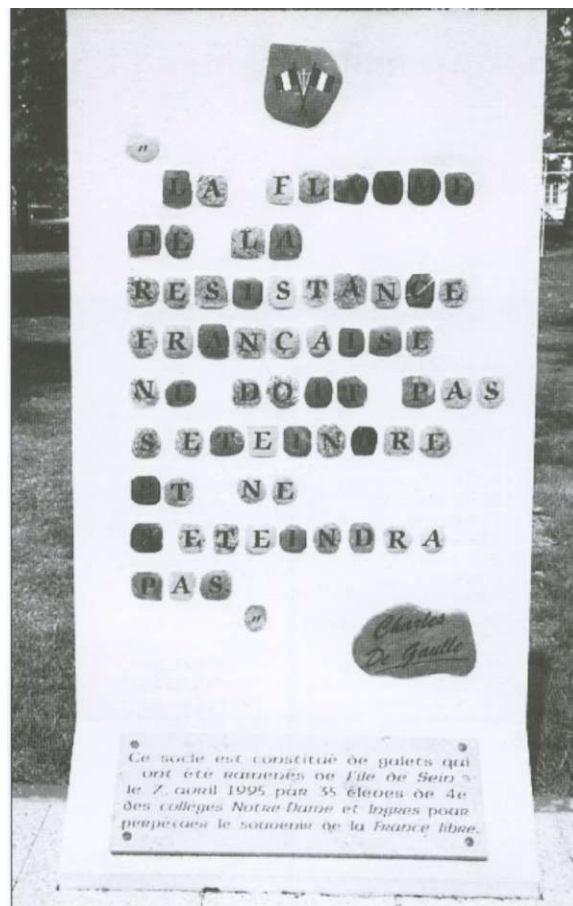 "
LA FLAMME
DE LA
RESISTANCE
FRANÇAISE
NE DOIT PAS
S ETEINDRE
ET NE
S ETEINDRA
PAS
"
Charles
De Gaulle
Ce socle est constitué de galets qui
ont été ramenés de l'île de Sein
le 7 avril 1995 par 35 élèves de 4e
des collèges Notre-Dame et Ingres pour
perpétuer le souvenir de la France libre.